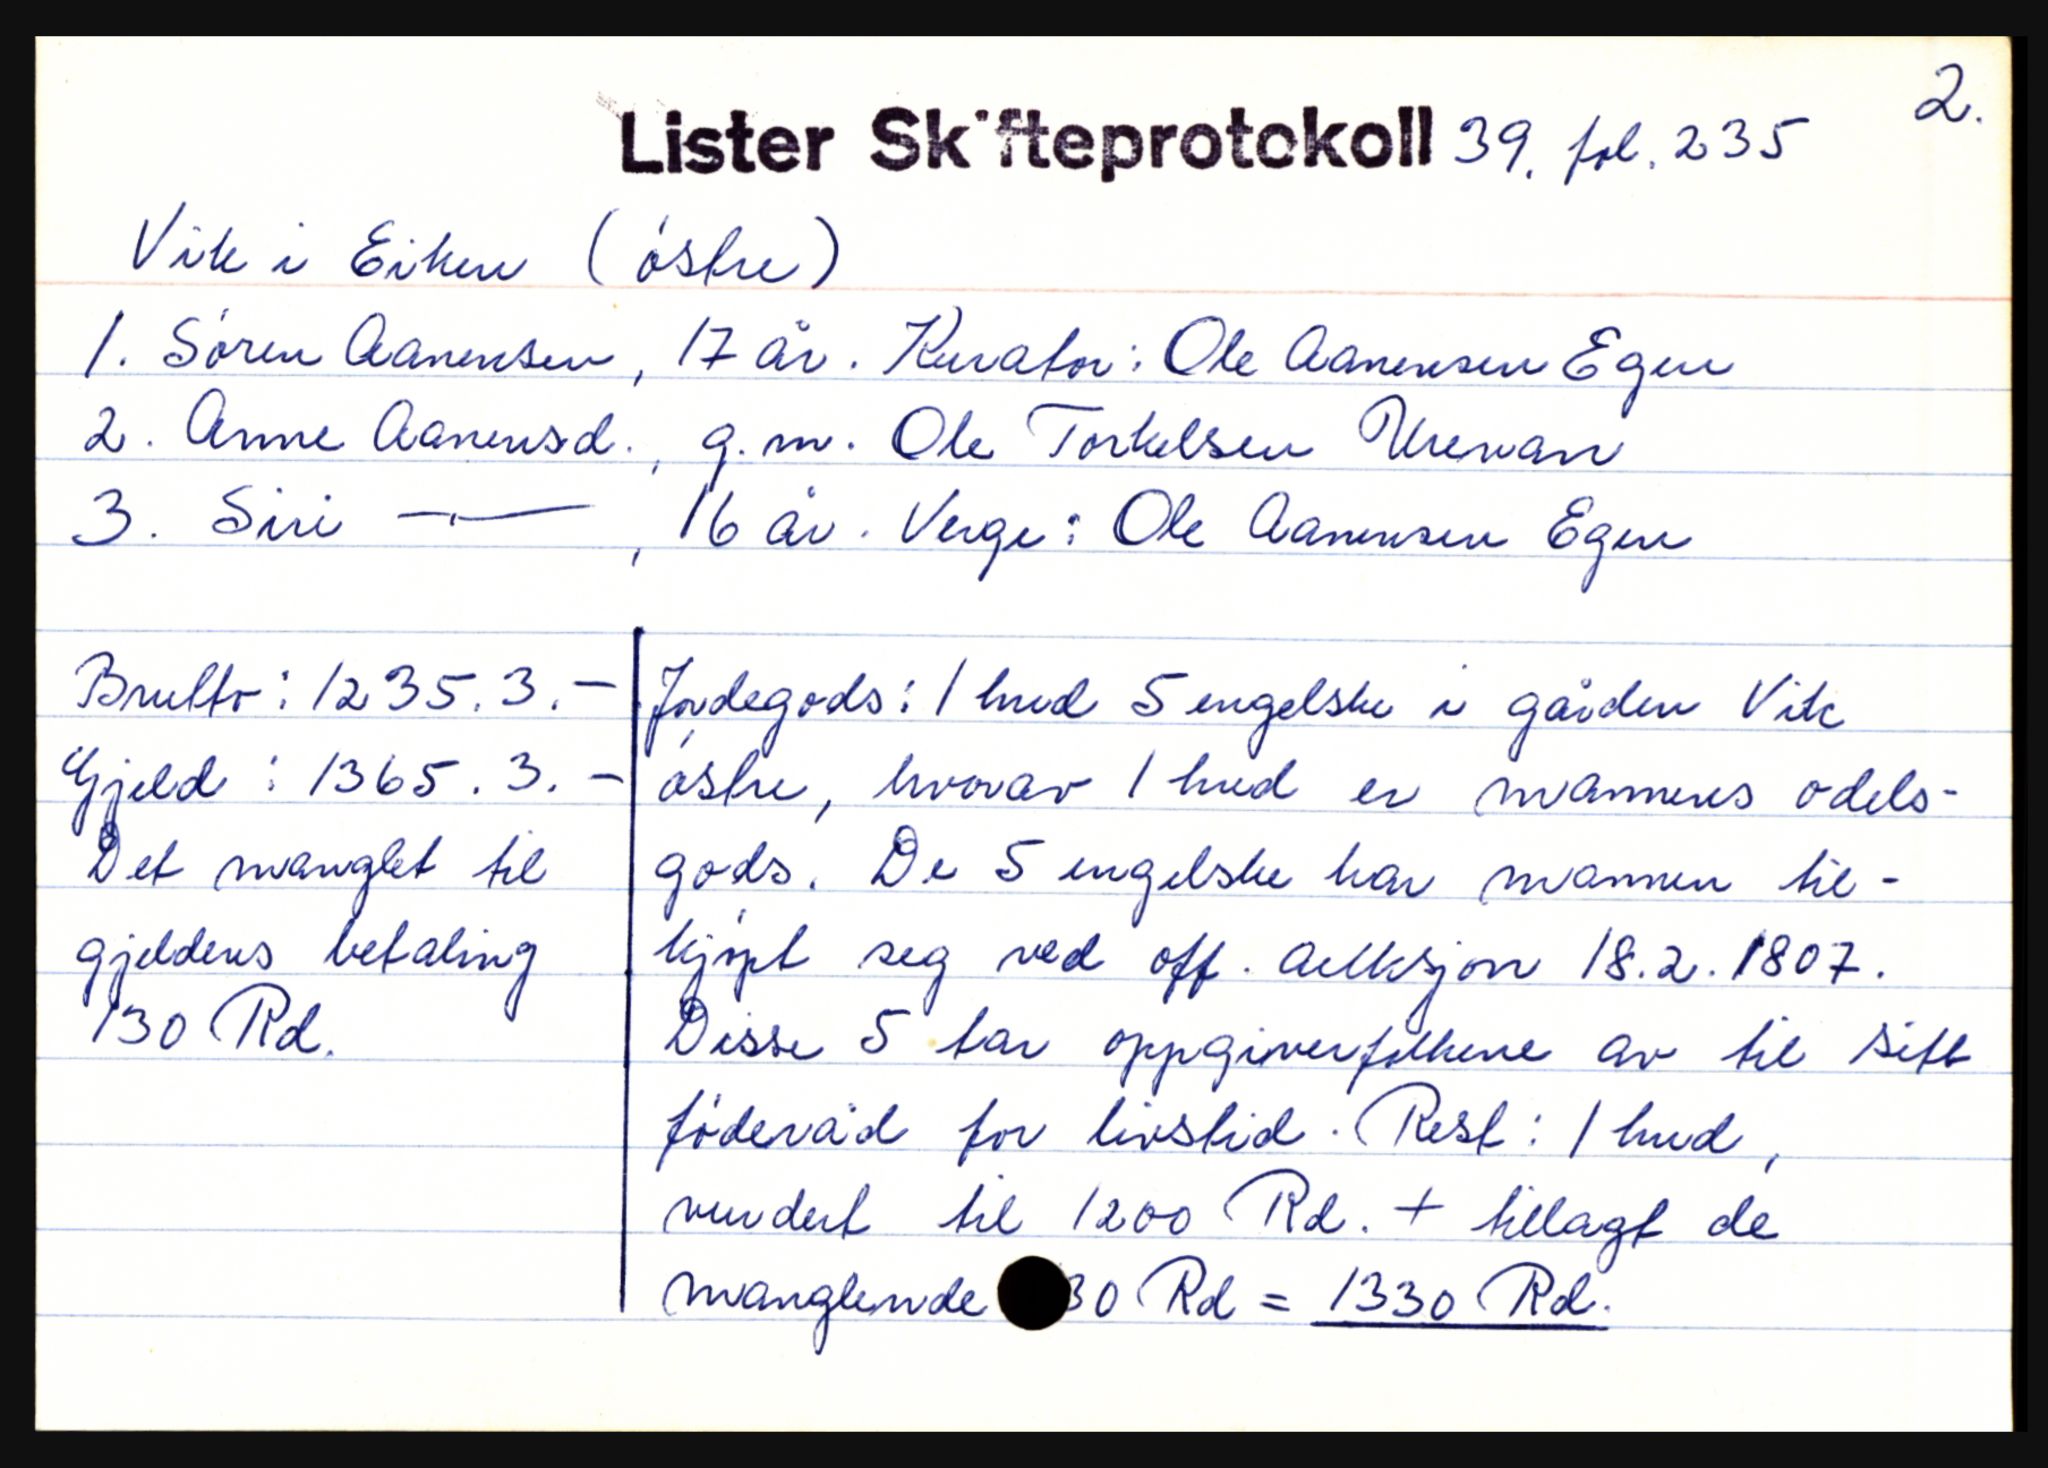 2.
Lister Skifteprotokoll 39. fol. 235
Vik i Eiken (østre)
1. Søren Aanensen, 17 år. Kurator: Ole Aanensen Egen
2. Anne Aanensd., g.m. Ole Torkelsen Urevan
3. Siri —"—, 16 år. Verge: Ole Aanensen Egen
Brutto: 1235.3.-
Gjeld: 1365.3.-
Det manglet til
gjeldens betaling
130 Rd.
Jordegods: 1 hud 5 engelske i gården Vik
østre, hvorav 1 hud er mannens odels-
gods. De 5 engelske har mannen til-
kjøpt seg ved off. auksjon 18.2.1807.
Disse 5 tar oppgiverfolkene av til sitt
føderåd for livstid. Rest: 1 hud,
vurdert til 1200 Rd. + tillagt de
manglende 30 Rd = 1330 Rd.